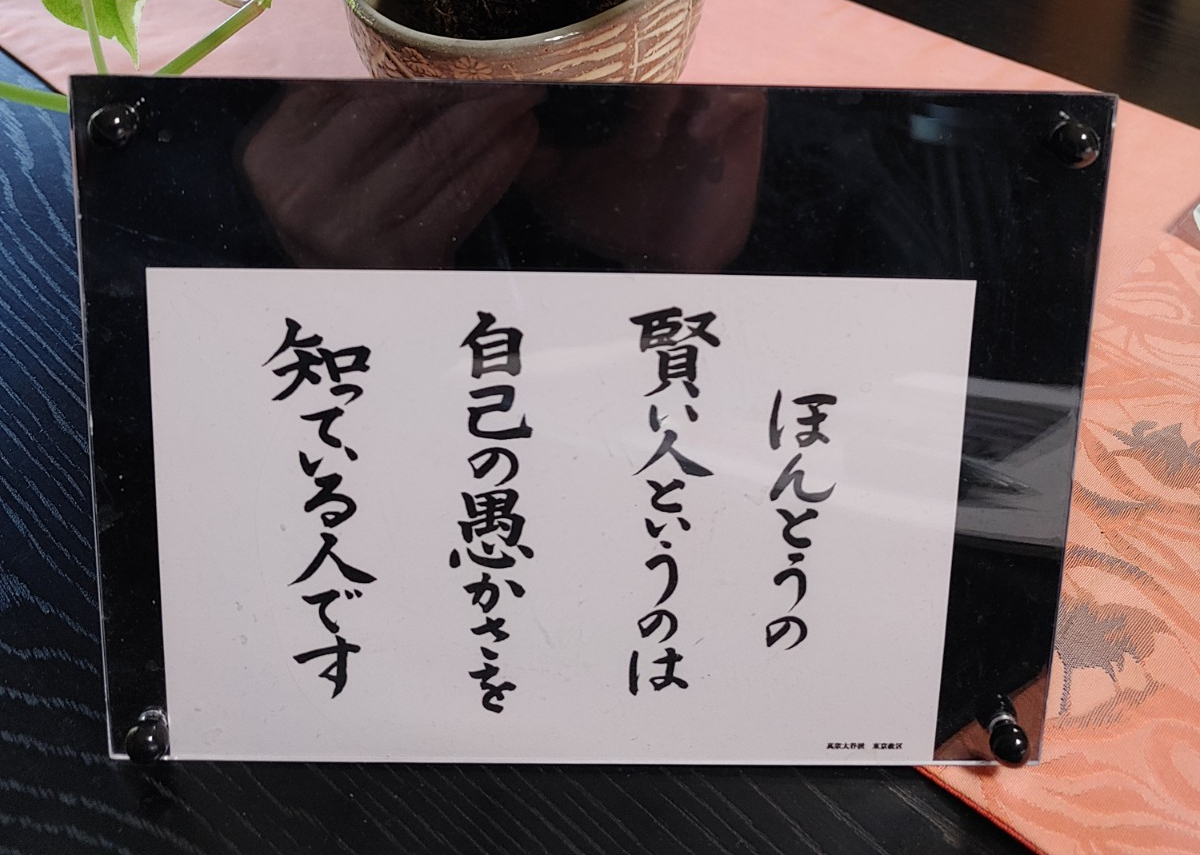 ほんとうの
賢い人というのは
自己の愚かさを
知っている人です
真宗大谷派　東京教区